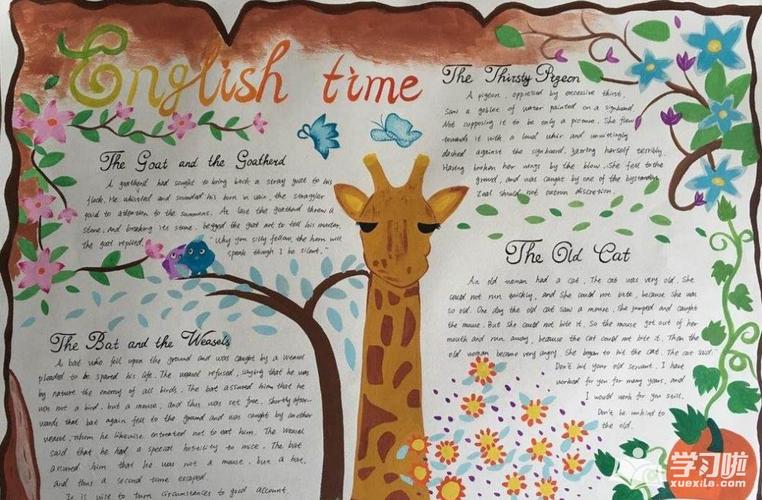 English time
The Thirsty Pigeon
A pigeon, oppressed by excessive thirst,
saw a goblet of water painted on a signboard.
Not supposing it to be only a picture. She flew
towards it with a loud whir and unwittingly
dashed against the signboard, jarring herself terribly.
Having broken her wings by the blow, She fell to the
ground, and was caught by one of the bystanders.
Zeal should not outrun discretion.
The Goat and the Goatherd
A goatherd had sought to bring back a stray goat to his
flock. He whistled and sounded his horn in vain, the straggler
paid to attention to the summons. At last the goatherd threw a
stone, and breaking its horn, begged the goat not to tell his master,
the goat replied, "Why you silly fellow, the horn will
speak though I be silent."
The Old Cat
An old woman had a cat. The cat was very old. She
could not run quickly, and she could not bite, because she was
so old. One day the old cat saw a mouse, She jumped and caught
the mouse. But She could not bite it. So the mouse got out of her
mouth and run away, because the cat could not bite it. Then the
old woman became very angry. She began to hit the cat. The cat said:
Don't hit your old servant. I have
worked for you for many years, and
I would work for you still,
Don't be unkind to
the old.
The Bat and the Weasels
A bat who fell upon the ground and was caught by a weasel
pleaded to be spared his life. The weasel refused, saying that he was
by nature the enemy of all birds. The bat assured him that he
was not a bird, but a mouse, and thus was set free. Shortly after-
wards that bat again fell to the ground and was caught by another
weasel, whom he likewise entreated not to eat him. The weasel
said that he had a special hostility to mice. The bat
assured him that he was not a mouse, but a bat,
and thus a second time escaped.
It is wise to turn circumstances to good account.
学习啦
xuexila.com